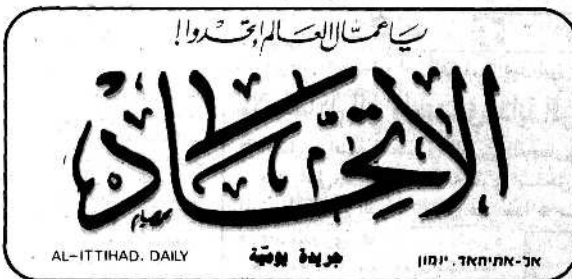 يا عمّال العالم اتّحدوا!
الاتّحاد
AL-ITTIHAD. DAILY جريدة يوميّة אל-אתיחאד. יומון